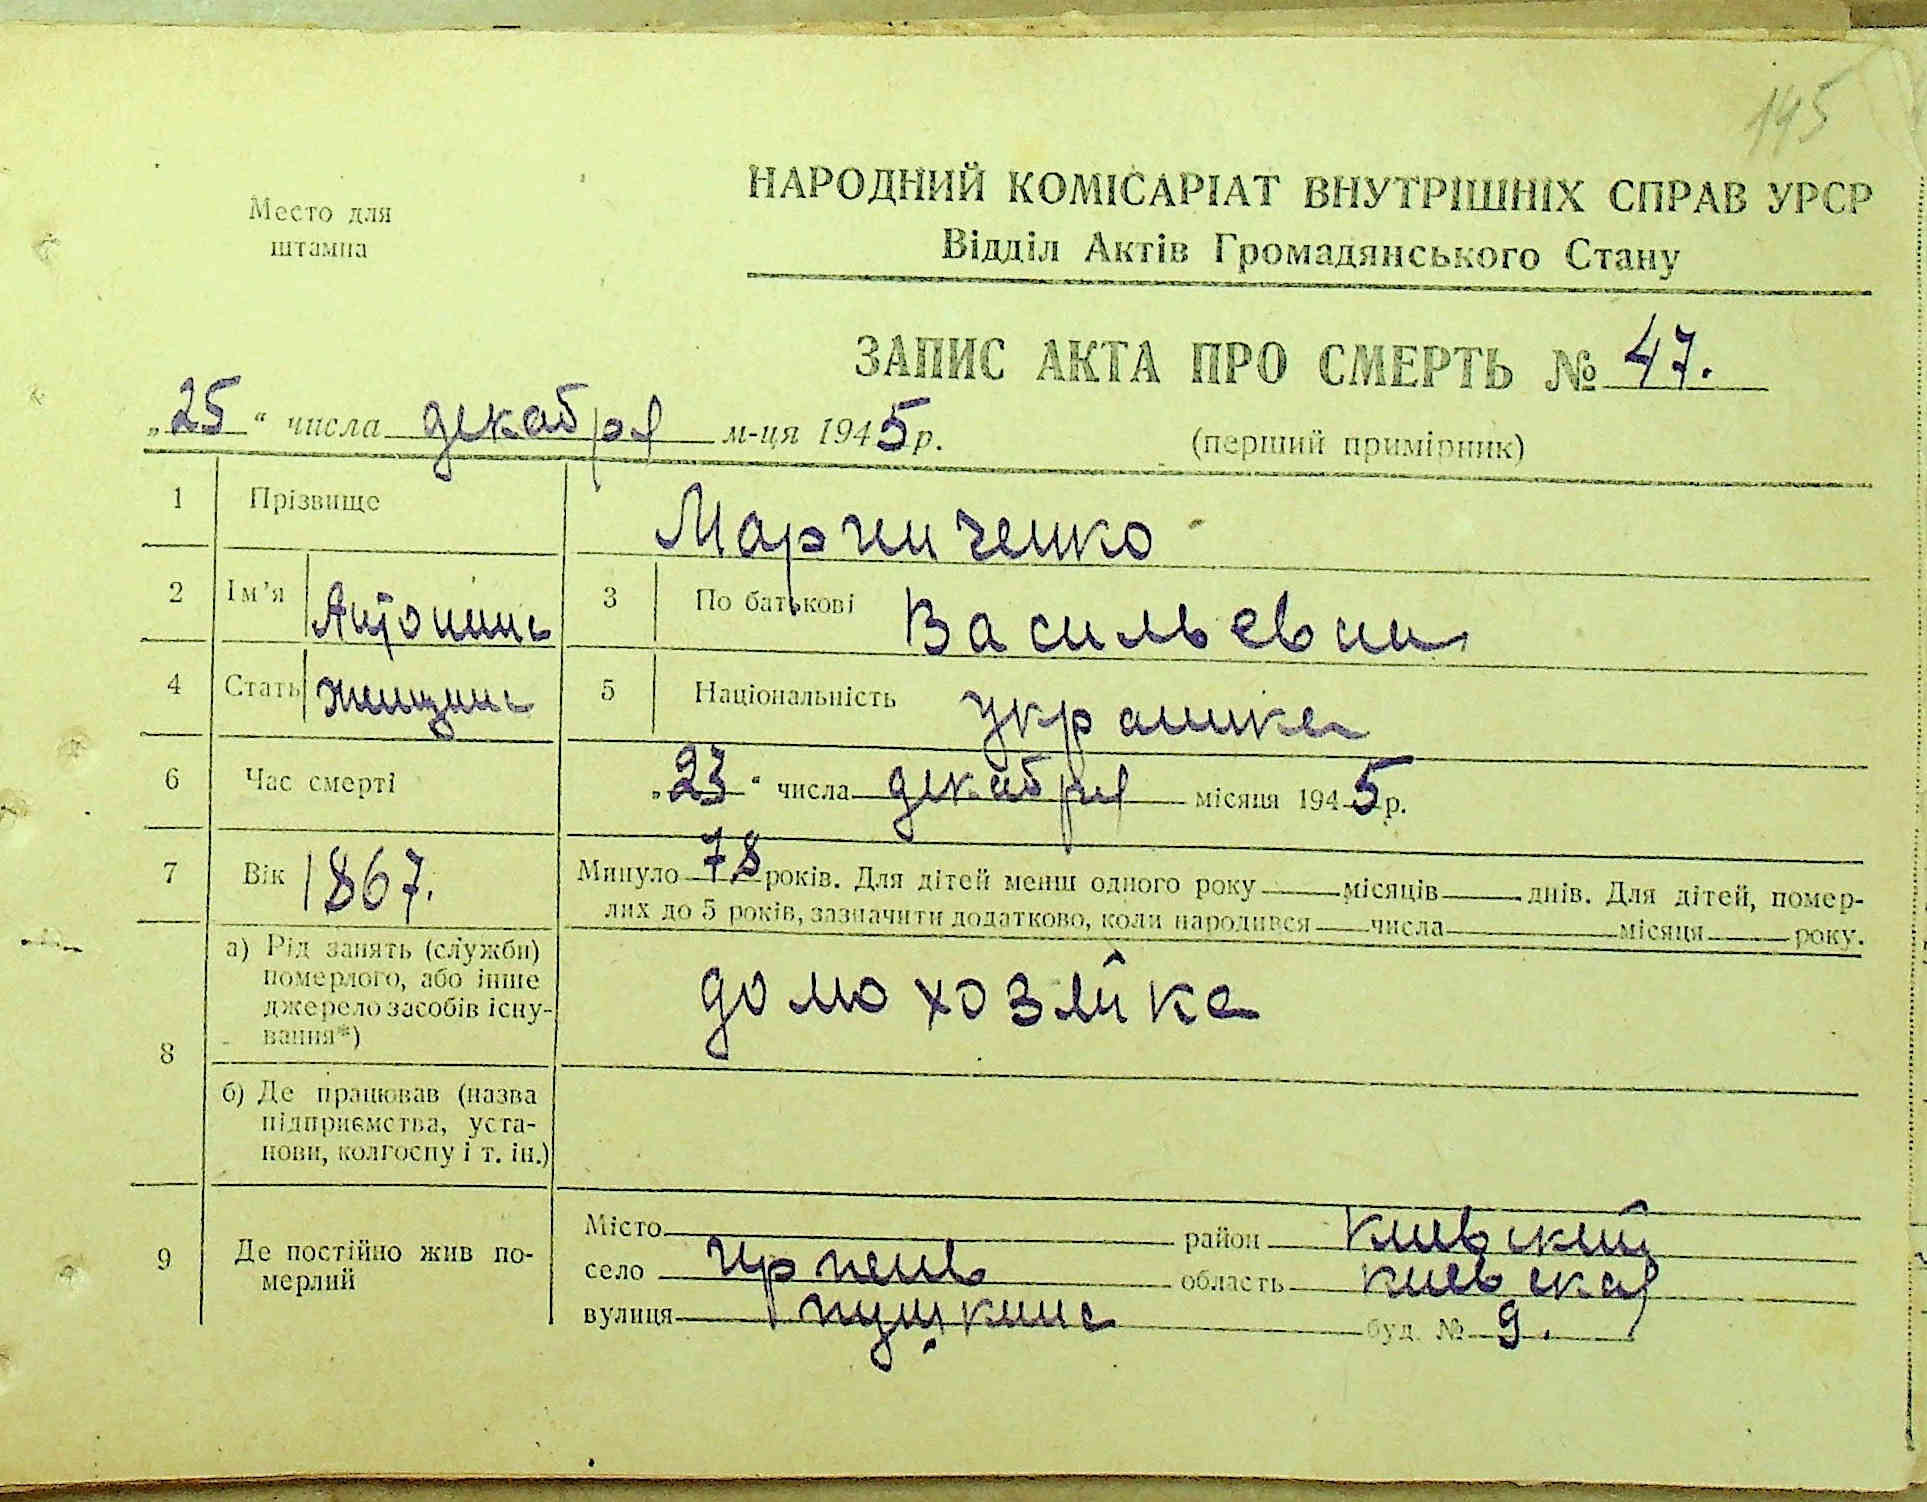 145
Место для
штампа
НАРОДНИЙ КОМІСАРІАТ ВНУТРІШНІХ СПРАВ УРСР
Відділ Актів Громадянського Стану
ЗАПИС АКТА ПРО СМЕРТЬ № 47.
„25“ числа декабря м-ця 1945 р.
(перший примірник)
1 Прізвище Марниченко
2 Ім’я Антонина 3 По батькові Васильевна
4 Стать женщина 5 Національність украинка
6 Час смерті „23“ числа декабря місяця 1945 р.
7 Вік 1867. Минуло 78 років. Для дітей менш одного року місяців днів. Для дітей, помер-
лих до 5 років, зазначити додатково, коли народився числа місяця року.
8 а) Рід занять (служби)
померлого, або інше
джерело засобів існу-
вання*)
домохозяйка
б) Де працював (назва
підприємства, уста-
нови, колгоспу і т. ін.)
9 Де постійно жив по-
мерлий
Місто район Киевский
село Ирпень область Киевская
вулиця Пушкина буд. № 9.